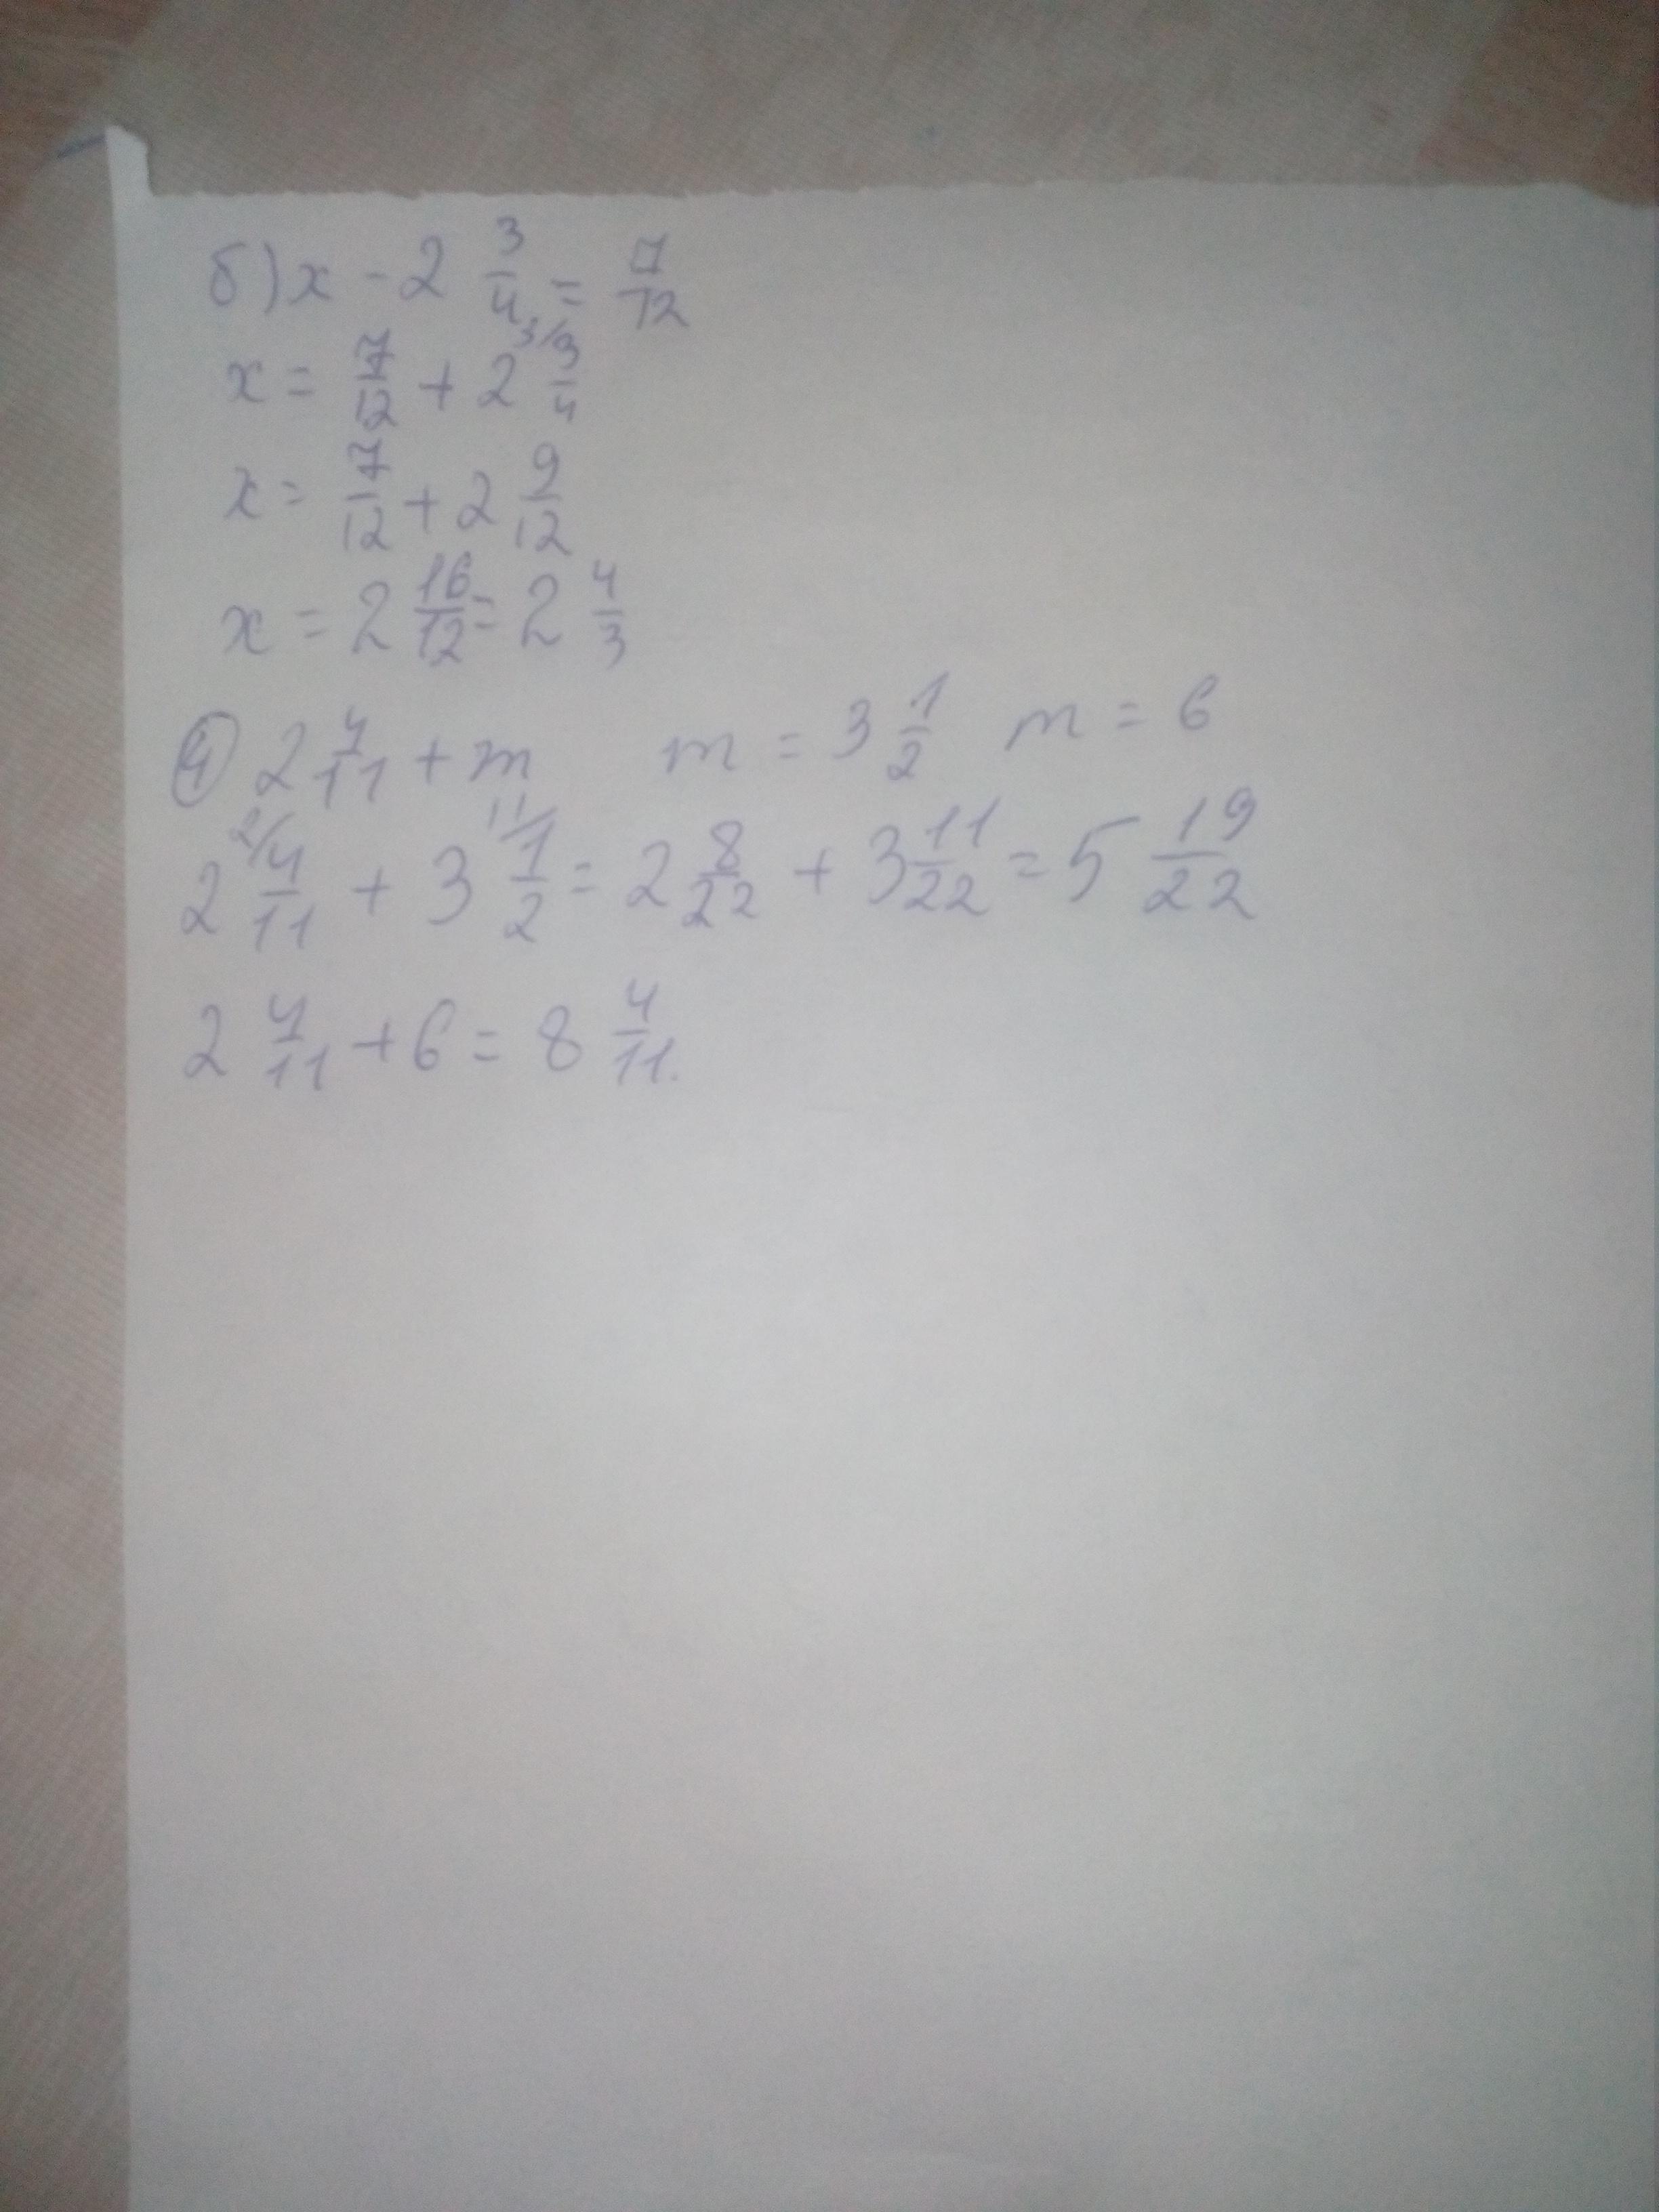 б) x - 2 3/4 = 7/12
x = 7/12 + 2 3/ 3/4
x = 7/12 + 2 9/12
x = 2 16/12 = 2 4/3
④ 2 4/11 + m m = 3 1/2 m = 6
2 2/ 4/11 + 3 11/ 1/2 = 2 8/22 + 3 11/22 = 5 19/22
2 4/11 + 6 = 8 4/11.